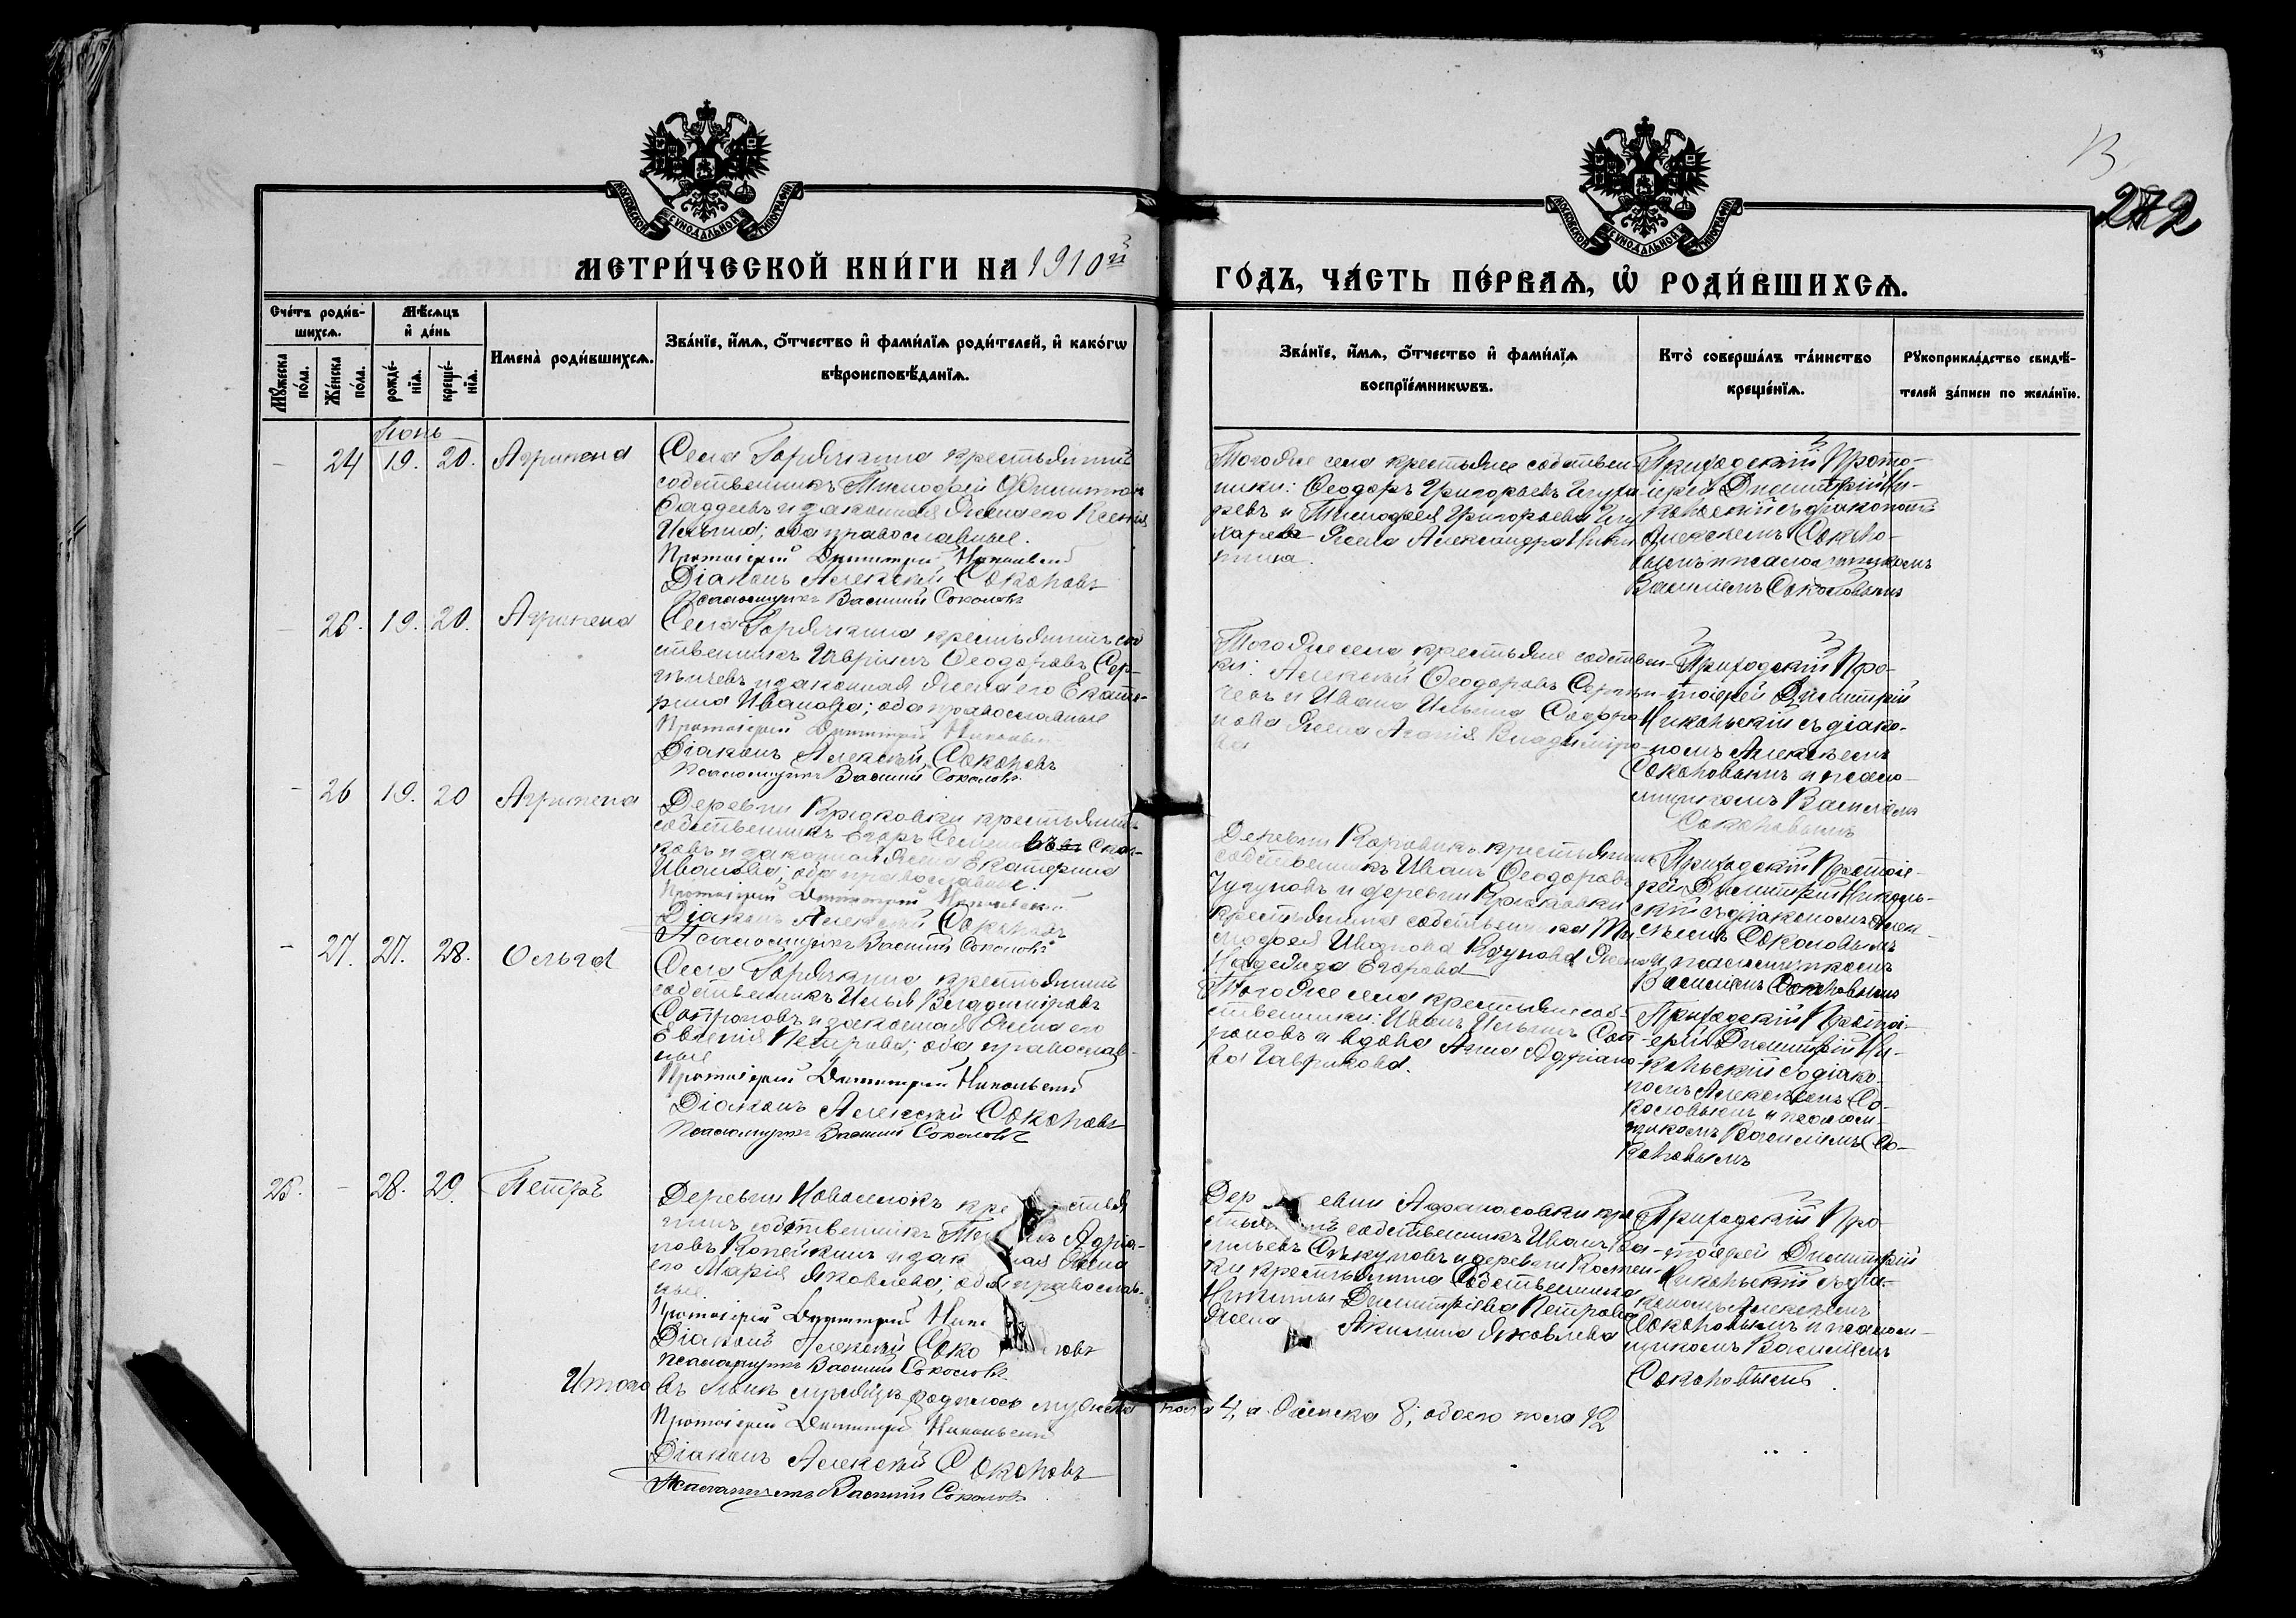 13
272
МОСКОВСКОЙ СѴНОДАЛЬНОЙ ТИПОГРАФІИ
МОСКОВСКОЙ СѴНОДАЛЬНОЙ ТИПОГРАФІИ
МЕТРИ́ЧЕСКОЙ КНИ́ГИ НА 1910й
ГО́ДЪ, ЧА́СТЬ ПЕ́РВАѦ, Ѽ РОДИ́ВШИХСѦ.
Сче́тъ роди́в-
шихсѧ.
Мꙋ́жеска
по́ла.
Же́нска
по́ла.
Мѣ́сѧцъ
и҆ де́нь
рожде́-
нїѧ.
креще́-
нїѧ.
Имена̀ роди́вшихсѧ.
Зва́нїе, и҆́мѧ, ѻ҆́тчество и҆ фами́лїѧ роди́телей, и҆ како́гѡ
вѣроисповѣ́данїѧ.
Зва́нїе, и҆́мѧ, ѻ҆́тчество и҆ фами́лїѧ
воспрїе́мникѡвъ.
Кто̀ соверша́лъ та́инство
креще́нїѧ.
Рꙋкоприкла́дство свидѣ́-
телей за́писи по жела́нїю.
Іюнь
- 24 19. 20. Агрипена
Села Горячкина крестьянинъ
собственникъ Тимофей Филиппов
Фаддеевъ и законная жена его Ксенія
Ильина; оба православные.
Протоіерей Димитрій Никольскій
Діаконъ Алексѣй Соколовъ
Псаломщикъ Василій Соколовъ
Тогоже села крестьяне собствен-
ники: Ѳеодоръ Григорьевъ
и Тимофея Григорьева
жена Александра Ники-
тина.
Приходскій Прото-
іерей Димитрій Ни-
кольскій съ діакономъ
Алексѣемъ Соколо-
вымъ и псаломщикомъ
Василіемъ Соколовымъ
- 25. 19. 20. Агрипена
Села Горячкина крестьянинъ соб
ственникъ Ѳеодоровъ Сер-
и законная жена его Екате-
рина Иванова; оба православные
Протоіерей Димитрій Никольскій
Діаконъ Алексѣй Соколовъ
Псаломщикъ Василій Соколовъ
Тогоже села крестьяне собствен-
ки: Алексѣй Ѳеодоровъ
и Ивана Ильина
жена Агапія Владиміро-
ва
Приходскій Про-
тоіерей Димитрій
Никольскій съ діако-
номъ Алексѣемъ
Соколовымъ и псало-
мщикомъ Василіемъ
Соколовымъ
- 26 19. 20 Агрипена
Деревни Крюковки крестьянинъ
собственникъ Егоръ
и законная жена Екатерина
Иванова; оба православные.
Протоіерей Димитрій Никольскій
Діаконъ Алексѣй Соколовъ
Псаломщикъ Василій Соколовъ
Деревни крестьянинъ
собственникъ Иванъ Ѳеодоровъ
Чугуновъ и деревни Крюковки
крестьянина собственника Ти-
мофея Иванова жена
Надежда Егорова
Приходскій Протоіе-
рей Димитрій Николь-
скій съ діакономъ Алек-
сѣемъ Соколовымъ
и псаломщикомъ
Василіемъ Соколовымъ
- 27. 27. 28. Ольга
Села Горячкина крестьянинъ
собственникъ Илья Владиміровъ
Сапроновъ и законная жена его
Евгенія Петрова; оба православ-
ные
Протоіерей Димитрій Никольскій
Діаконъ Алексѣй Соколовъ
Псаломщикъ Василій Соколовъ
Тогоже села крестьяне соб-
ственники: Иванъ Ильинъ Сап-
роновъ и вдова Анна Адріано-
ва Гаврикова.
Приходскій Протоі-
ерей Димитрій Ни-
кольскій со діако-
номъ Алексѣемъ Со-
коловымъ и псалом-
щикомъ Василіемъ Со-
коловымъ
25. - 28. 29. Петръ
Деревни Новоселокъ кре стья
нинъ собственникъ Адріа-
новъ Копейкинъ и зак ная жена
его Марія Яковлева; оба православ-
ные.
Протоіерей Димитрій Нико
Діаконъ Алексѣй Соко ловъ
Псаломщикъ Василій Соколовъ
Дер евни Афанасовки кре
стья нъ собственникъ Иванъ Ва-
сильевъ и деревни
крестьянина собственника
Никиты Димитріева Петрова
жена Акилина Яковлева
Приходскій Про-
тоіерей Димитрій
Никольскій со діа-
кономъ Алексѣемъ
Соколовымъ и псалом-
щикомъ Василіемъ
Соколовымъ.
Итого въ Іюнѣ мѣсяцѣ родилось мужеска пола 4, а женска 8; обоего пола 12
Протоіерей Димитрій Никольскій
Діаконъ Алексѣй Соколовъ
Псаломщикъ Василій Соколовъ